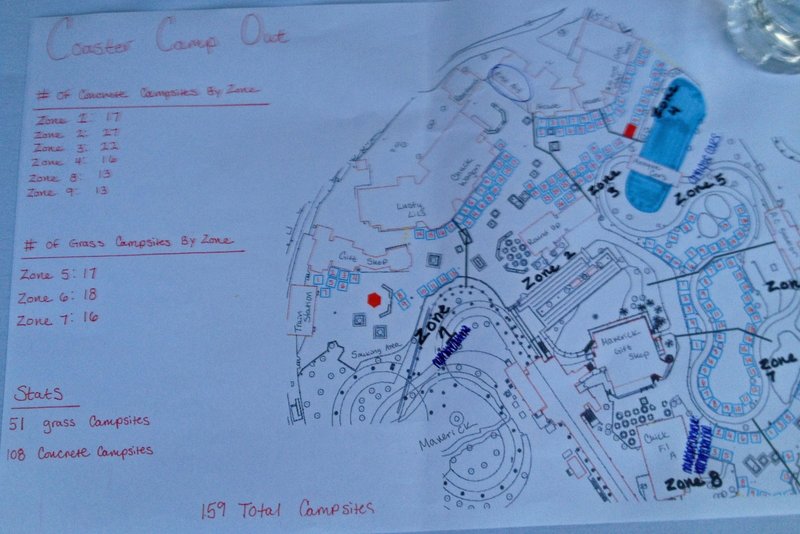 Coaster Camp Out
# of Concrete Campsites By Zone
Zone 1: 17
Zone 2: 27
Zone 3: 22
Zone 4: 16
Zone 8: 13
Zone 9: 13
# of Grass Campsites By Zone
Zone 5: 17
Zone 6: 18
Zone 7: 16
Stats
51 grass Campsites
108 Concrete Campsites
159 Total Campsites
Zone 4
Zone 3
Zone 5
Chuck Wagon
Lusty Lil's
Round Up
Gift Shop
Zone 2
Train Station
Zone 1
Smoking Area
Maverick Gift Shop
Maverick
Chick Fil A
Zone 7
Zone 8